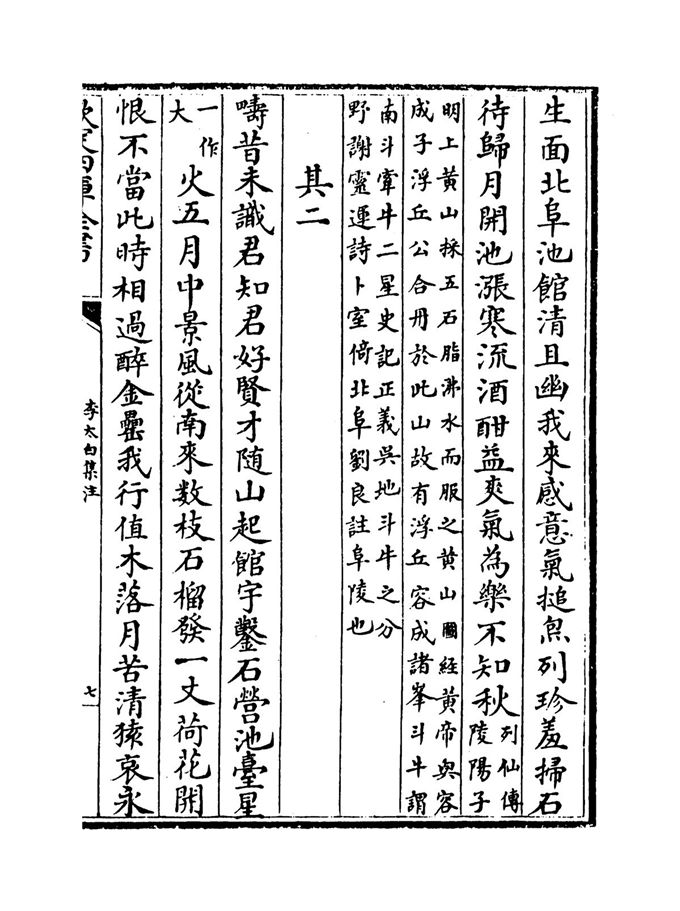 生面北阜池館清且幽我來感意氣搥炰列珍羞掃石
待歸月開池漲寒流酒酣益爽氣為樂不知秋列仙傳
陵陽子
明上黄山採五石脂沸水而服之黄山圖經黄帝與容
成子浮丘公合丹於此山故有浮丘容成諸峯斗牛謂
南斗牽牛二星史記正義吳地斗牛之分
野謝靈運詩卜室倚北阜劉良註阜陵也
其二
疇昔未識君知君好賢才随山起館宇鑿石營池臺星
一作
大
火五月中景風從南來数枝石榴發一丈荷花開
恨不當此時相過醉金罍我行值木落月苦清猿哀永
李太白集注
七